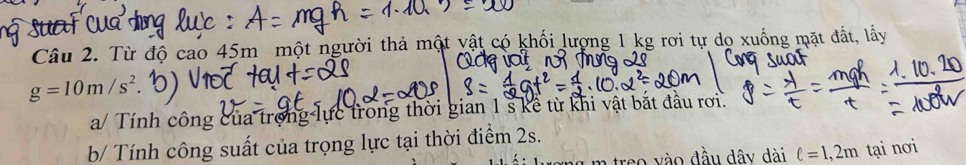 suất của trọng lực : A = mgh = 1.10.
Câu 2. Từ độ cao 45m một người thả một vật có khối lượng 1 kg rơi tự do xuống mặt đất, lấy
g = 10m/s². b) Vtốc tại t = 2s
v = gt = 10.2 = 20
vật rơi trong 2s
S = ½gt² = ½.10.2² = 20m
Công suất
P = A/t = mgh/t = 1.10.20
= 100W
a/ Tính công của trọng lực trong thời gian 1 s kể từ khi vật bắt đầu rơi.
b/ Tính công suất của trọng lực tại thời điểm 2s.
m treo vào đầu dây dài ℓ = 1,2m tại nơi